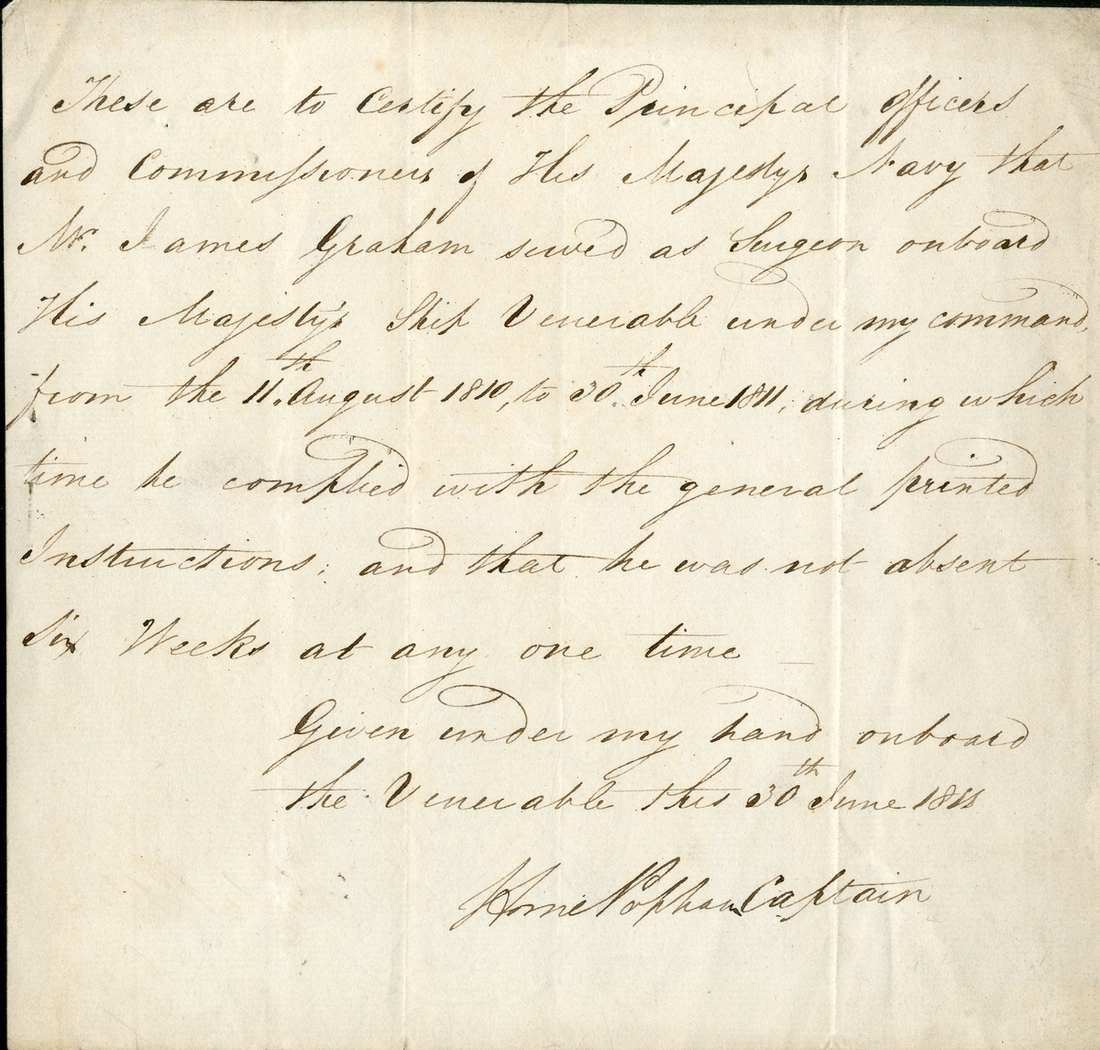 These are to Certify the Principal officers
and Commissioners of His Majestys Navy that
Mr. James Graham served as Surgeon onboard
His Majesty's Ship Venerable under my command,
from the 11th August 1810, to 30th June 1811, during which
time he complied with the general printed
Instructions, and that he was not absent
Six Weeks at any one time
Given under my hand onboard
the Venerable this 30th June 1811
Home Popham Captain